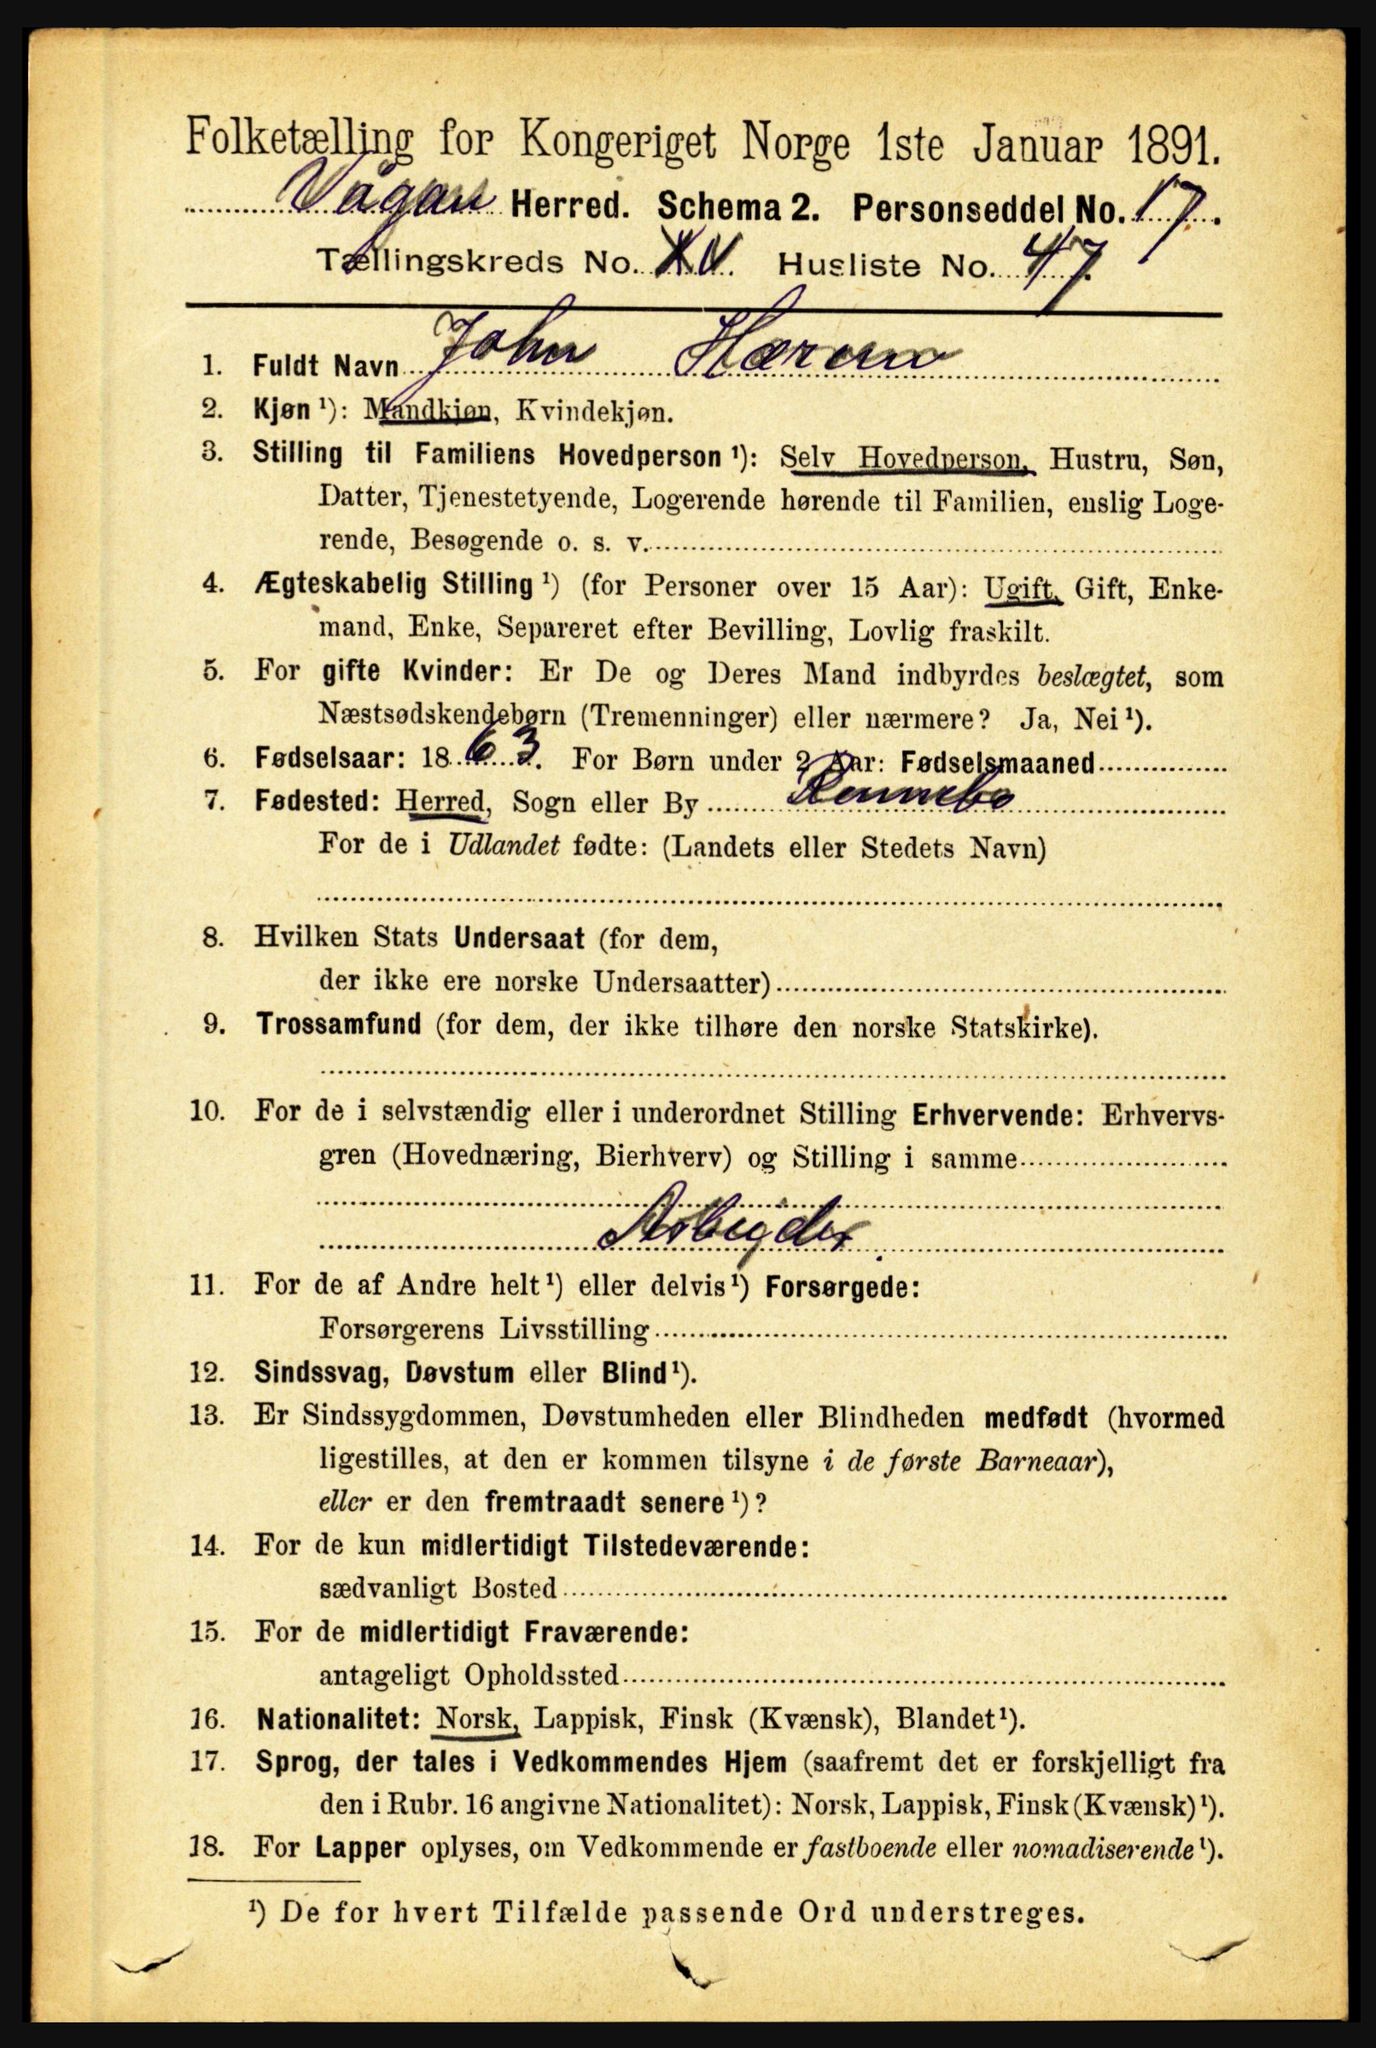 Folketælling for Kongeriget Norge 1ste Januar 1891.
Vågan Herred. Schema 2. Personseddel No. 17.
Tællingskreds No. XV. Husliste No. 47.
1. Fuldt Navn John Hærem
2. Kjøn ¹): Mandkjøn, Kvindekjøn.
3. Stilling til Familiens Hovedperson ¹): Selv Hovedperson, Hustru, Søn,
Datter, Tjenestetyende, Logerende hørende til Familien, enslig Loge-
rende, Besøgende o. s. v.
4. Ægteskabelig Stilling ¹) (for Personer over 15 Aar): Ugift, Gift, Enke-
mand, Enke, Separeret efter Bevilling, Lovlig fraskilt.
5. For gifte Kvinder: Er De og Deres Mand indbyrdes beslægtet, som
Næstsødskendebørn (Tremenninger) eller nærmere? Ja, Nei ¹).
6. Fødselsaar: 1863. For Børn under 2 Aar: Fødselsmaaned
7. Fødested: Herred, Sogn eller By Rennebo
For de i Udlandet fødte: (Landets eller Stedets Navn)
8. Hvilken Stats Undersaat (for dem,
der ikke ere norske Undersaatter)
9. Trossamfund (for dem, der ikke tilhøre den norske Statskirke).
10. For de i selvstændig eller i underordnet Stilling Erhvervende: Erhvervs-
gren (Hovednæring, Bierhverv) og Stilling i samme
Arbejder.
11. For de af Andre helt ¹) eller delvis ¹) Forsørgede:
Forsørgerens Livsstilling
12. Sindssvag, Døvstum eller Blind ¹).
13. Er Sindssygdommen, Døvstumheden eller Blindheden medfødt (hvormed
ligestilles, at den er kommen tilsyne i de første Barneaar),
eller er den fremtraadt senere ¹)?
14. For de kun midlertidigt Tilstedeværende:
sædvanligt Bosted
15. For de midlertidigt Fraværende:
antageligt Opholdssted
16. Nationalitet: Norsk, Lappisk, Finsk (Kvænsk), Blandet ¹).
17. Sprog, der tales i Vedkommendes Hjem (saafremt det er forskjelligt fra
den i Rubr. 16 angivne Nationalitet): Norsk, Lappisk, Finsk (Kvænsk) ¹).
18. For Lapper oplyses, om Vedkommende er fastboende eller nomadiserende ¹).
¹) De for hvert Tilfælde passende Ord understreges.